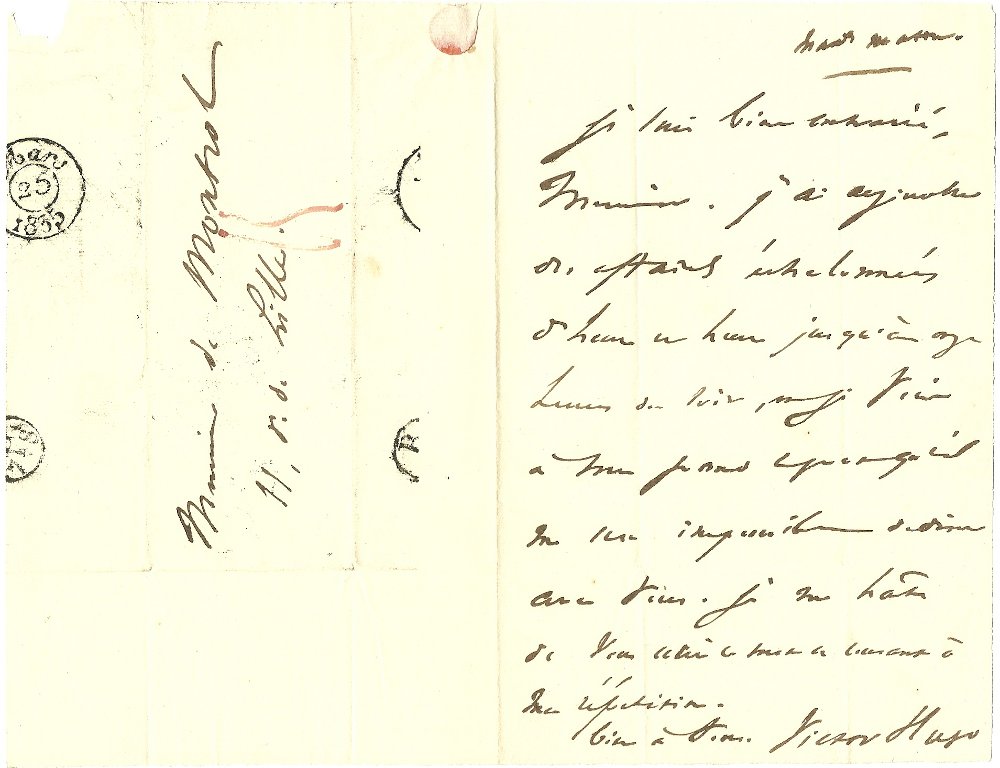 Mars
25
1835
Monsieur de Montrol
11, r. de Lille.
R
mardi matin.
je suis bien contrarié,
Monsieur. j'ai aujourd'hui
des affaires échelonnées
d'heure en heure jusqu'à onze
heures du soir, je viens
à mon grand qu'il
me sera impossible de dîner
avec vous. je me hâte
de vous écrire ce mot en courant à
ma répétition.
bien à vous. Victor Hugo